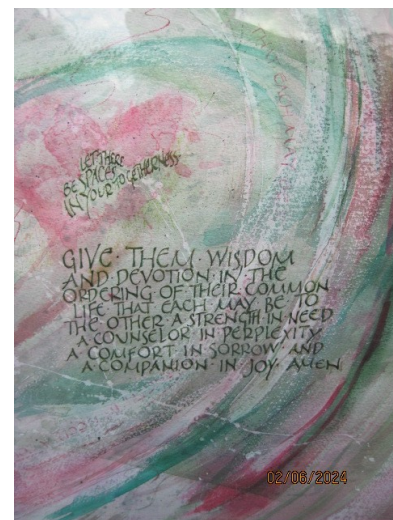 LET THERE
BE SPACES
IN YOUR TOGETHERNESS
GIVE · THEM · WISDOM
AND DEVOTION · IN · THE
ORDERING OF THEIR COMMON
LIFE THAT EACH MAY BE TO
THE OTHER A STRENGTH IN NEED
A COUNSELOR IN PERPLEXITY
A COMFORT IN SORROW AND
A COMPANION · IN JOY · AMEN
02/06/2024